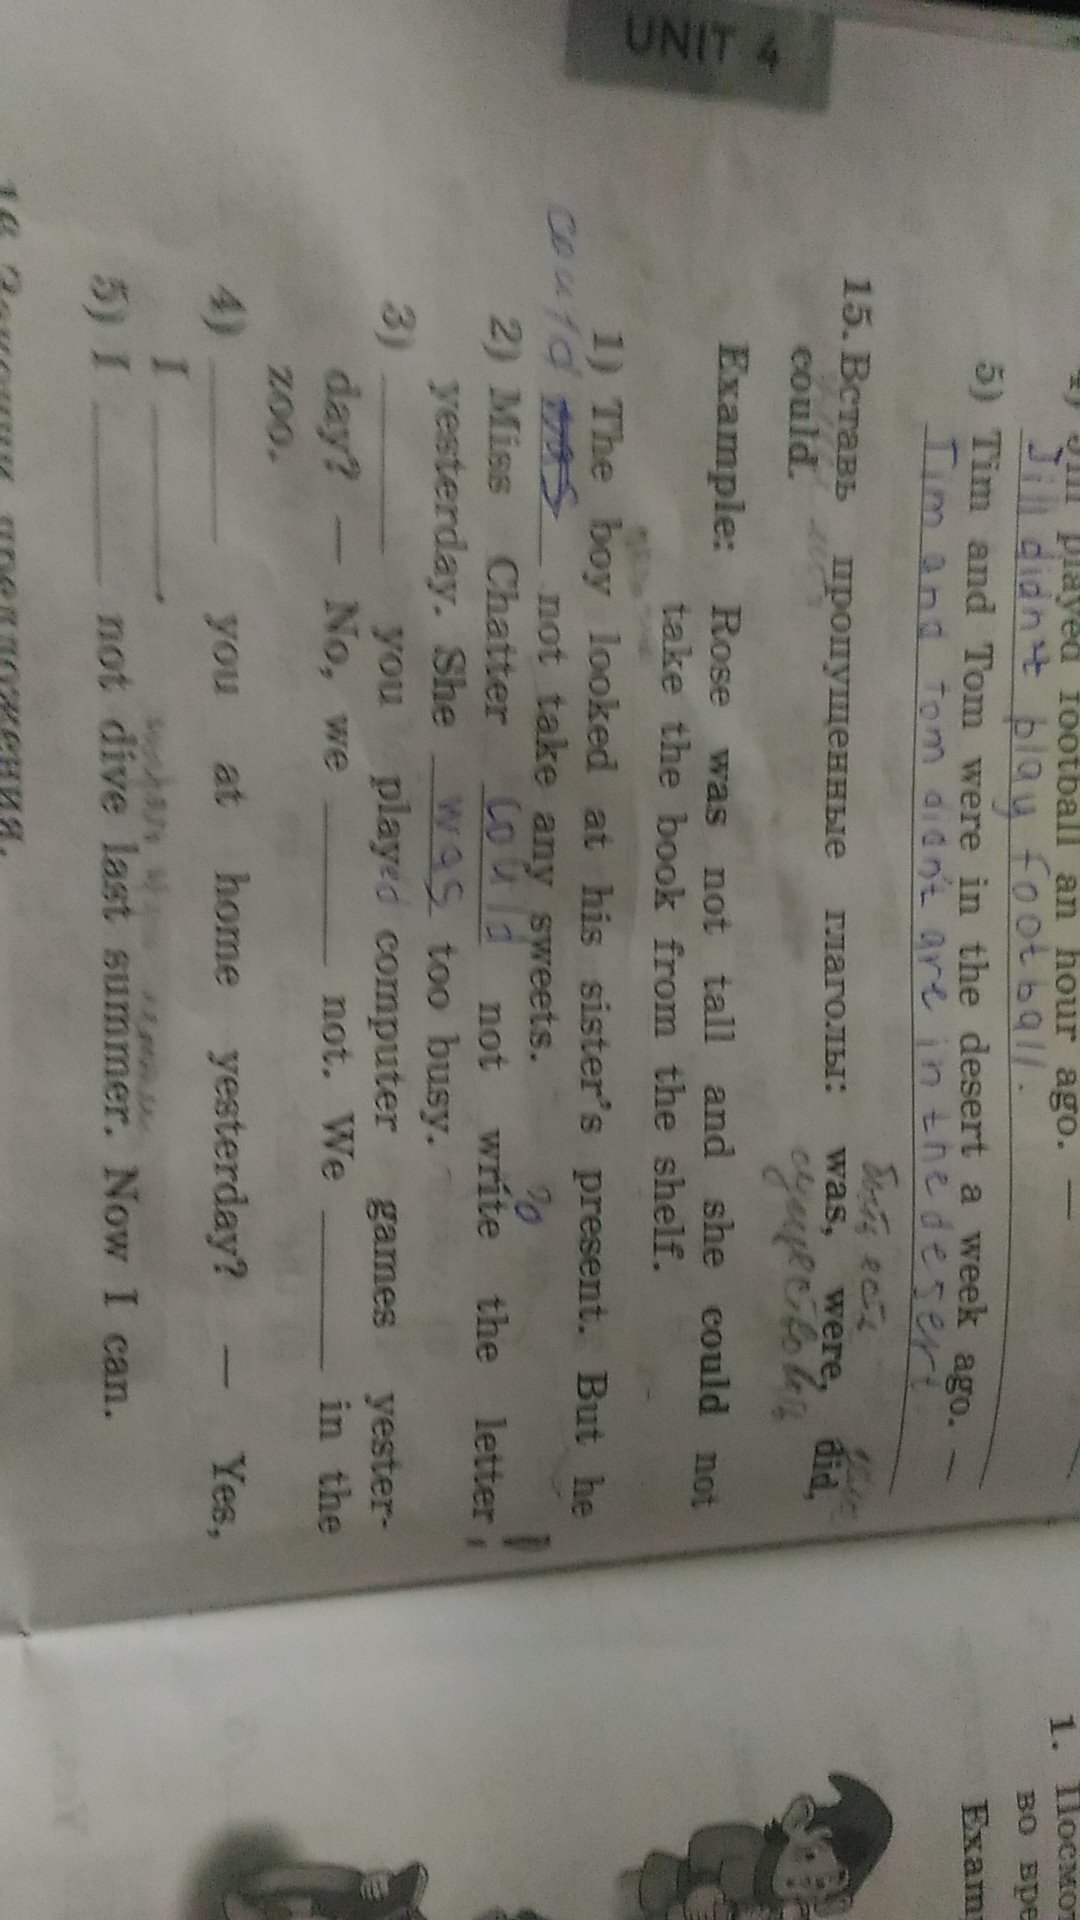 UNIT 4
played football an hour ago. —
Jill didn't play football.
5) Tim and Tom were in the desert a week ago. —
Tim and Tom didn't are in the desert
15. Вставь пропущенные глаголы: was, were, did,
could.
Example: Rose was not tall and she could not
take the book from the shelf.
1) The boy looked at his sister's present. But he
could not take any sweets.
2) Miss Chatter could not write the letter,
yesterday. She was too busy.
3) ____ you played computer games yester-
day? — No, we ____ not. We ____ in the
zoo.
4) ____ you at home yesterday? — Yes,
I ____.
5) I ____ not dive last summer. Now I can.
1.
во вре
Exam